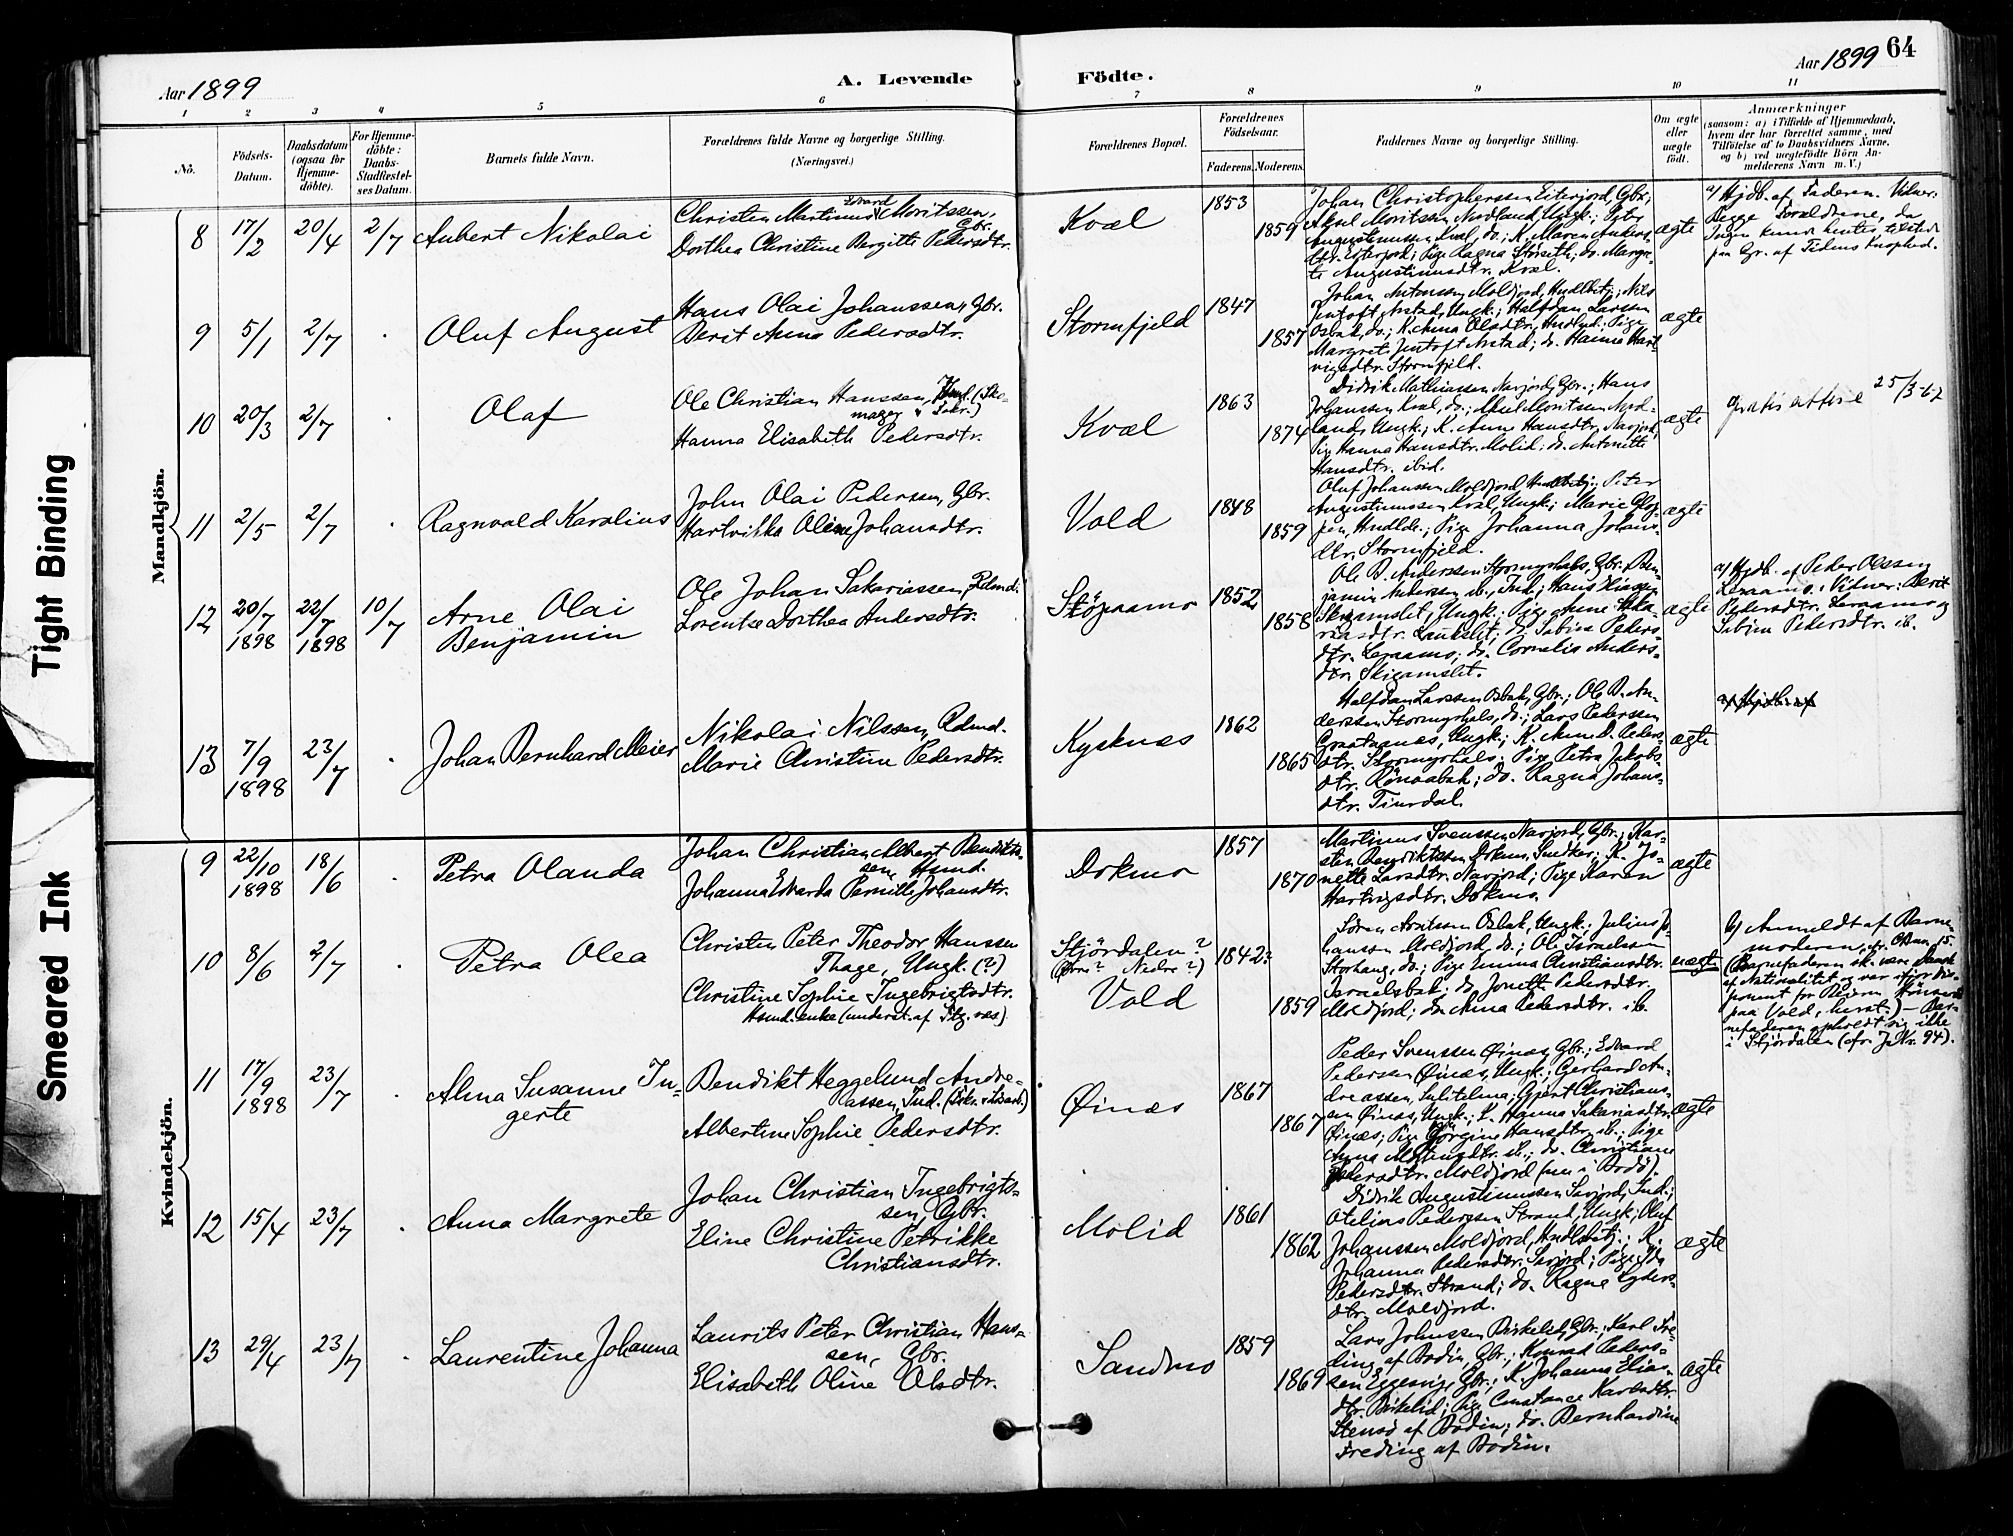 Aar 1899
A. Levende Födte.
Aar 1899 64
1 2 3 4 5 6 7 8 9 10 11
Nö.
Födsels-Datum.
Daabsdatum (ogsaa for Hjemme-döbte).
For Hjemme-döbte: Daabs-Stadfæstel-ses Datum.
Barnets fulde Navn.
Forældrenes fulde Navne og borgerlige Stilling.
(Næringsvei.)
Forældrenes Bopæl.
Forældrenes Födselsaar.
Faderens. Moderens.
Faddernes Navne og borgerlige Stilling.
Om ægte eller uægte födt.
Anmærkninger
(saasom: a) i Tilfælde af Hjemmedaab, hvem der har forrettet samme, med Tilföielse af to Daabsvidners Navne, og b) ved uægtefödte Börn An-melderens Navn m. V.)
Mandkjön.
8 17/2 20/4 2/7 Aubert Nikolai
Christen Martinus Edvard Moritssen, Gbr.
Dorthea Christine Birgitte Pedersdtr.
Kval 1853 1859
Johan Christophersen Eiterjord, Gbr.;
Aksel Moritssen Nordland, Ungk.; Peter
Augustinussen Kval, do.; K. Maren Anders-
dtr. Eiterjord; Pige Ragna Storseth; do. Margre-
te Augustinusdtr. Kval.
ægte
a) Hjdb. af Faderen. Vidner:
Begge Forældrene, da
Ingen kunde hentes,
paa Gr. af Tidens Knaphed.
9 5/1 2/7 Oluf August
Hans Olai Johanssen, Gbr.
Berit Anna Pedersdtr.
Stormfjeld 1847 1857
Johan Antonssen Moldjord, Hndlbetj.; Nils
Jentoft Arstad, Ungk.; Halfdan Larssen
Osbak, do.; K. Anna Olsdtr.; Pige
Margrete Jentoft Arstad; do. Hanna Hart-
vigsdtr. Stormfjeld.
ægte
10 20/3 2/7 Olaf
Ole Christian Hanssen, (Sko-
mager)
Hanna Elisabeth Pedersdtr.
Kval 1863 1874
Didrik Mathiassen Navjord, Gbr.; Hans
Johanssen Kval, do.; Aksel Moritssen Nord-
land, Ungk.; K. Anne Hansdtr. Navjord;
Pige Hanna Hansdtr. Molid; do. Antonette
Hansdtr. ibid.
ægte
25/3-67
11 2/5 2/7 Ragnvald Karolius
John Olai Pedersen, Gbr.
Hartvikka Oline Johansdtr.
Vold 1848 1859
Oluf Johanssen Moldjord, Hndlbetj.; Peter
Augustinussen Kval, Ungk.; Marie Glop-
pen, Hndlde.; Pige Johanna Johans-
dtr. Stormfjeld.
ægte
12 20/7 1898 22/7 1898 10/7 Arne Olai
Benjamin
Ole Johan Sakariassen, Rdmd.
Lorentse Dorthea Andersdtr.
Stöpaamo 1852 1858
Ole B. Anderssen Stormyrhals, Gbr.; Ben-
jamin Anderssen ib., Ind.; Hans Eliassen
Skjeamslet, Ungk.; Pige Anne
dtr.; do. Sabine Peders-
dtr. Leraamo; do. Cornelia Anders-
dtr. Skjeamslet.
ægte
a) Hjdb. af Peder Olssen
Leraamo. Vidner: Berit
Pedersdtr. Leraamo og
Sabine Pedersdtr. ib.
13 7/9 1898 23/7 Johan Bernhard Meier
Nikolai Nilssen, Rdmd.
Marie Christine Pedersdtr.
Kysknæs 1862 1865
Halfdan Larssen Osbak, Gbr.; Ole B. An-
derssen Stormyrhals, do.; Lars Pederssen
Graatnæs, Ungk.; K. Anne D. Peders-
dtr. Stormyrhals; Pige Petra Jakobs-
dtr. Rönaabak; do. Ragna Johans-
dtr. Tinrdal.
ægte
Kvindekjön.
9 22/10 1898 18/6 Petra Olanda
Johan Christian Albert Bendikts-
sen, Hsmd.
Johanna Edvarda Pernille Johansdtr.
Dokmo 1857 1870
Martinus Svenssen Navjord, Gbr.; Kar-
sten Bendiktssen Dokmo, Snedker; K. Jo-
nette Larsdtr. Navjord; Pige Karen
Hartvigsdtr. Dokmo.
ægte
10 8/6 2/7 Petra Olea
Christen Peter Theodor Hanssen
Thage, Ungk. (?)
Christine Sophie Ingebrigtsdtr.
Hsmd.enke (underst. af Ftg.væs.)
Stjördalen?
(Övre? Nedre?)
Vold 1842? 1859
Sören Arntssen Osbak, Ungk.; Julius Jo-
hanssen Moldjord, do.; Ole Israelssen
Storhaug, do.; Pige Emma Christiansdtr.
Israelsbak; do. Jonette Pedersdtr.
Moldjord; do. Anna Pedersdtr. ib.
uægte
b) Anmeldt af Barne-
moderen,
(Barnefaderen sk. være Dansk
af Nationalitet og var ifjor
paa Vold, herst.) – Bar-
nefaderen opholdt sig ikke
i Stjördalen (cfr. J. Nr. 94).
11 17/9 1898 23/7 Alma Susanne In-
gerte
Bendikt Heggelund Andre-
assen, Ind.
Albertine Sophie Pedersdtr.
Øinæs 1867 1867
Peder Svenssen Øinæs, Gbr.; Edvard
Pederssen Øinæs, Ungk.; Gerhard An-
dreassen, Sulitelma; Gjert Christians-
sen Øinæs, Ungk.; K. Hanna Sakariasdtr.
Øinæs; Pige Jörgine Hansdtr. ib.; Pige
Anna Mortensdtr. ib.; do. Christiane
Pedersdtr. Moldjord (nu i Bodö).
ægte
12 15/4 23/7 Anna Margrete
Johan Christian Ingebrigts-
sen, Gbr.
Eline Christine Petrikke
Christiansdtr.
Molid 1861 1862
Didrik Augustinussen Savjord, Ind.;
Otelius Pederssen Strand, Ungk.; Oluf
Johanssen Moldjord, Hndlbetj.; K.
Johanna Pedersdtr. Savjord; Pige Ida
Pedersdtr. Strand; do. Ragna Eyders-
dtr. Moldjord.
ægte
13 29/4 23/7 Laurentine Johanna
Laurits Peter Christian Hans-
sen, Gbr.
Elisabeth Oline Olsdtr.
Sandmo 1859 1869
Lars Johnssen Birkelid, Gbr.; Karl Fre-
ding af Bodin, Gbr.; Konrad Peders-
sen Eggesvig, Gbr.; K. Johanna Elias-
dtr. Birkelid; Pige Constance Karlsdtr.
Stensö af Bodin; do. Bernhardine
Freding af Bodin.
ægte
Tight Binding
Smeared Ink